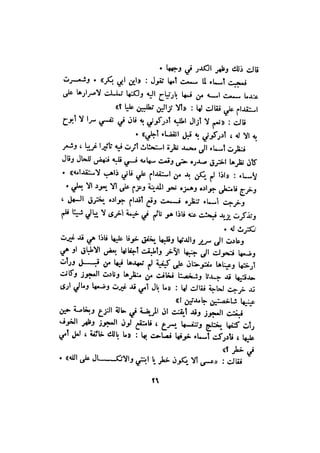 قالت ذلك وظهر الكدر في وجهها ٠
فعجبت أسماء لما سمعت أمها تقول : «ابن أبي بكر» ٠ وشعرت
عندما سمعت اسمه من فمها بارتياح اليه ولكنها تململت لاصرارها على
استقدام علي فقالت لها : «ألا تزالين تطلبين عليا ؟»
قالت : «نعم لا أزال أطلبه أدركوني به فان في نفسي سرا لا أبوح
به الا له ، أدركوني به قبل انقضاء أجلي» ٠
فنظرت أسماء الى محمد نظرة استحثاث أثرت فيه تأثيرا غريبا ، وشعر
كأن نظرها اخترق صدره حتى وقعت سهامه في قلبه فنهض للحال وقال
لأسماء : «اذا لم يكن بد من استقدام علي فاني ذاهب لاستقدامه» ٠
وخرج فامتطى جواده وهمزه نحو المدينة وعزم على ألا يعود الا بعلي ٠
وخرجت أسماء تنظره فسمعت وقع أقدام جواده يخترق السهل ،
وتذكرت يزيد فبحثت عنه فاذا هو نائم في خيمة أخرى لا يبالي شيئا فلم
تكترث له ٠
وعادت الى سرير والدتها وقلبها يخفق خوفا عليها فاذا هي قد غيرت
وضعها فتحولت الى جنبها الآخر وأطبقت أجفانها بعض الاطباق او هي
أرختها وعيناها مفتوحتان على كيفية لم تعهدها فيها من قبل ورأت
حدقتيها قد جمدتا وشخصتا فخافت من منظرها ونادت العجوز وكانت
قد خرجت لحاجة فقالت لها : «ما بال أمي قد غيرت وضعها ومالي أرى
عينيها شاخصتين جامدتين ؟»
فبغتت العجوز وقد أيقنت ان المريضة في حالة النزع وبخاصة حين
رأت كتفها يختلج وتنفسها يسرع ، فامتقع لون العجوز وظهر الخوف
عليها ، فأدركت أسماء خوفها فصاحت بها : «ما بالك خائفة ، لعل أمي
في خطر ؟»
فقالت : «عسى ألا يكون خطر يا ابنتي والاتكـــال على الله» ٠
٢٦